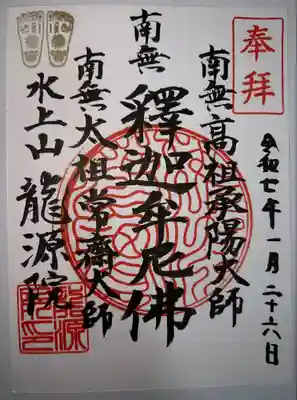 奉拝
令和七年一月二十六日
南無高祖承陽大師
南無釋迦牟尼佛
南無太祖常濟大師
水上山龍源院